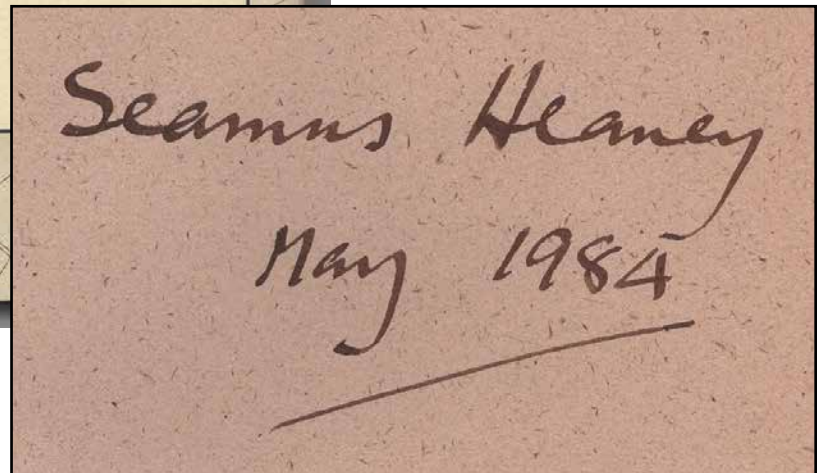 Seamus Heaney
May 1984